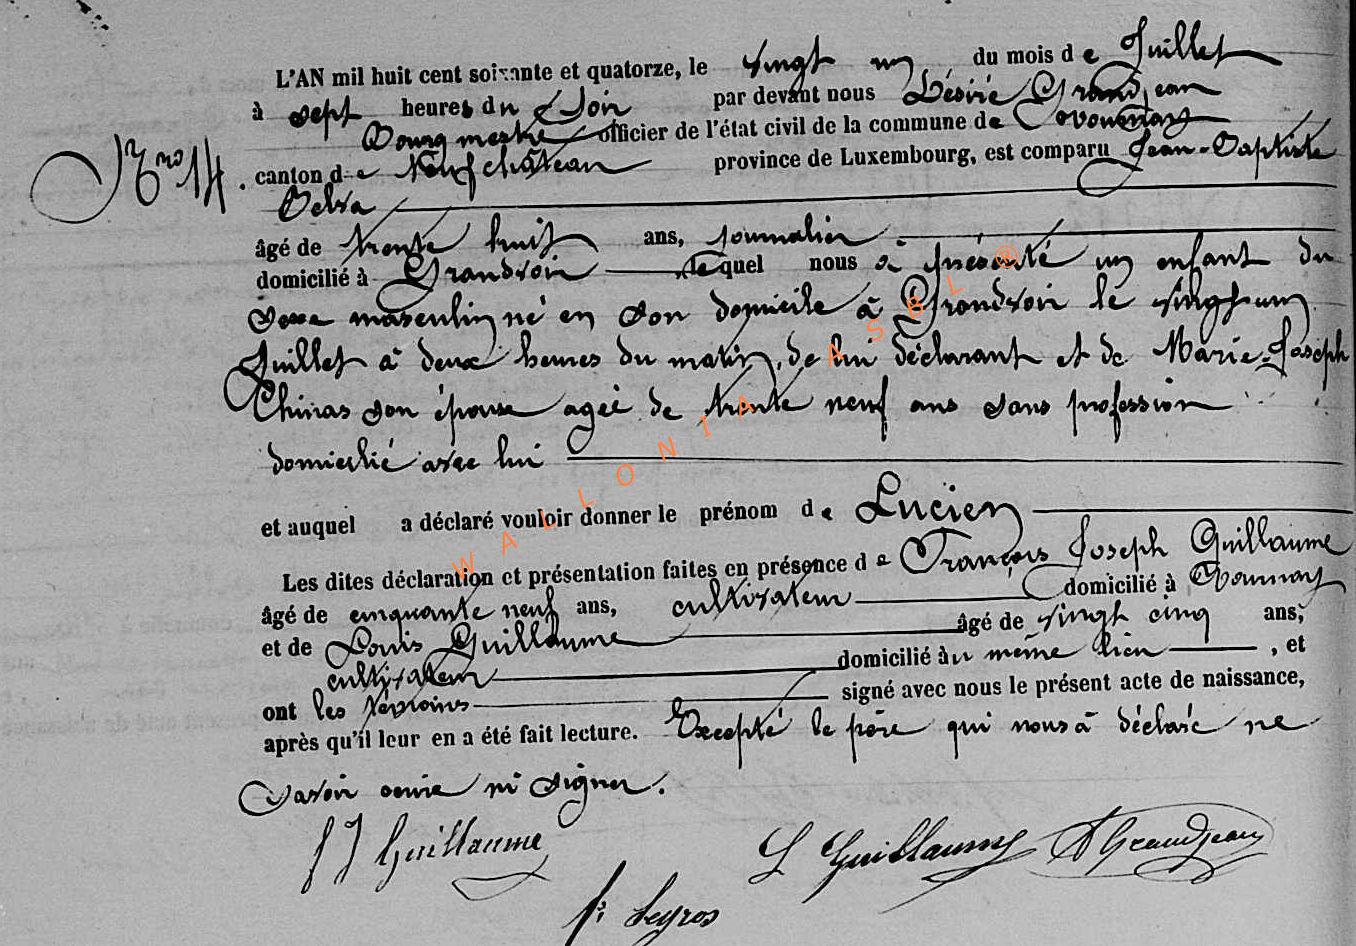 L'AN mil huit cent soixante et quatorze, le vingt un du mois de Juillet
à sept heures du Soir par devant nous Désiré Grandjean
Bourgmestre officier de l'état civil de la commune de
Nro 14. canton de Neufchâteau province de Luxembourg, est comparu Jean-Baptiste
âgé de trente huit ans, journalier
domicilié à Grandvoir lequel nous à présenté un enfant du
sexe masculin né en son domicile à Grandvoir le vingt un
Juillet à deux heures du matin, de lui déclarant et de Marie-Joseph
son épouse agée de trente neuf ans sans profession
domicilié avec lui
et auquel a déclaré vouloir donner le prénom de Lucien
Les dites déclaration et présentation faites en présence de François Joseph Guillaume
âgé de cinquante neuf ans, cultivateur domicilié à
et de Louis Guillaume âgé de vingt cinq ans,
cultivateur domicilié au même lieu , et
ont les témoins signé avec nous le présent acte de naissance,
après qu'il leur en a été fait lecture. Excepté le père qui nous à déclaré ne
savoir ni signer.
f J Guillaume
L Guillaume D Grandjean
WALLONIA ASBL ®